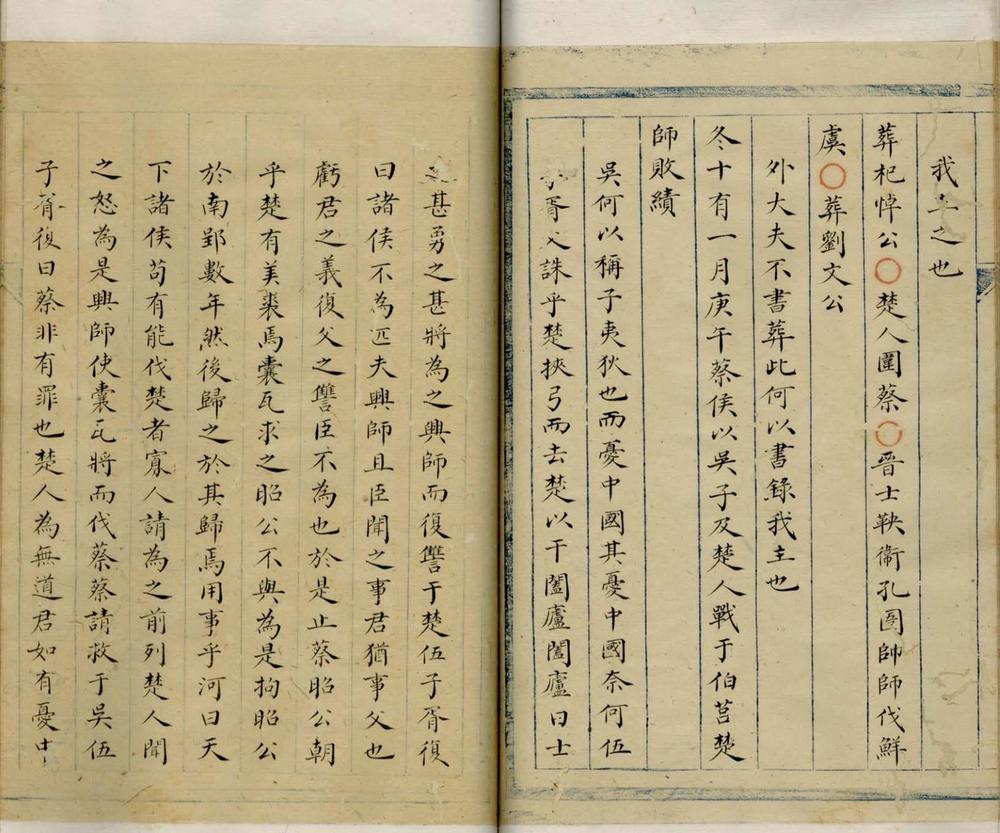 我主之也
葬杞悼公○楚人圍蔡○晉士鞅衛孔圉帥師伐鮮
虞○葬劉文公
外大夫不書葬此何以書錄我主也
冬十有一月庚午蔡侯以吳子及楚人戰于伯莒楚
師敗績
吳何以稱子夷狄也而憂中國其憂中國奈何伍
子胥父誅乎楚挾弓而去楚以干闔廬闔廬曰士
之甚勇之甚將為之興師而復讐于楚伍子胥復
曰諸侯不為匹夫興師且臣聞之事君猶事父也
虧君之義復父之讐臣不為也於是止蔡昭公朝
乎楚有美裘焉囊瓦求之昭公不與為是拘昭公
於南郢數年然後歸之於其歸焉用事乎河曰天
下諸侯苟有能伐楚者寡人請為之前列楚人聞
之怒為是興師使囊瓦將而伐蔡蔡請救于吳伍
子胥復曰蔡非有罪也楚人為無道君如有憂中